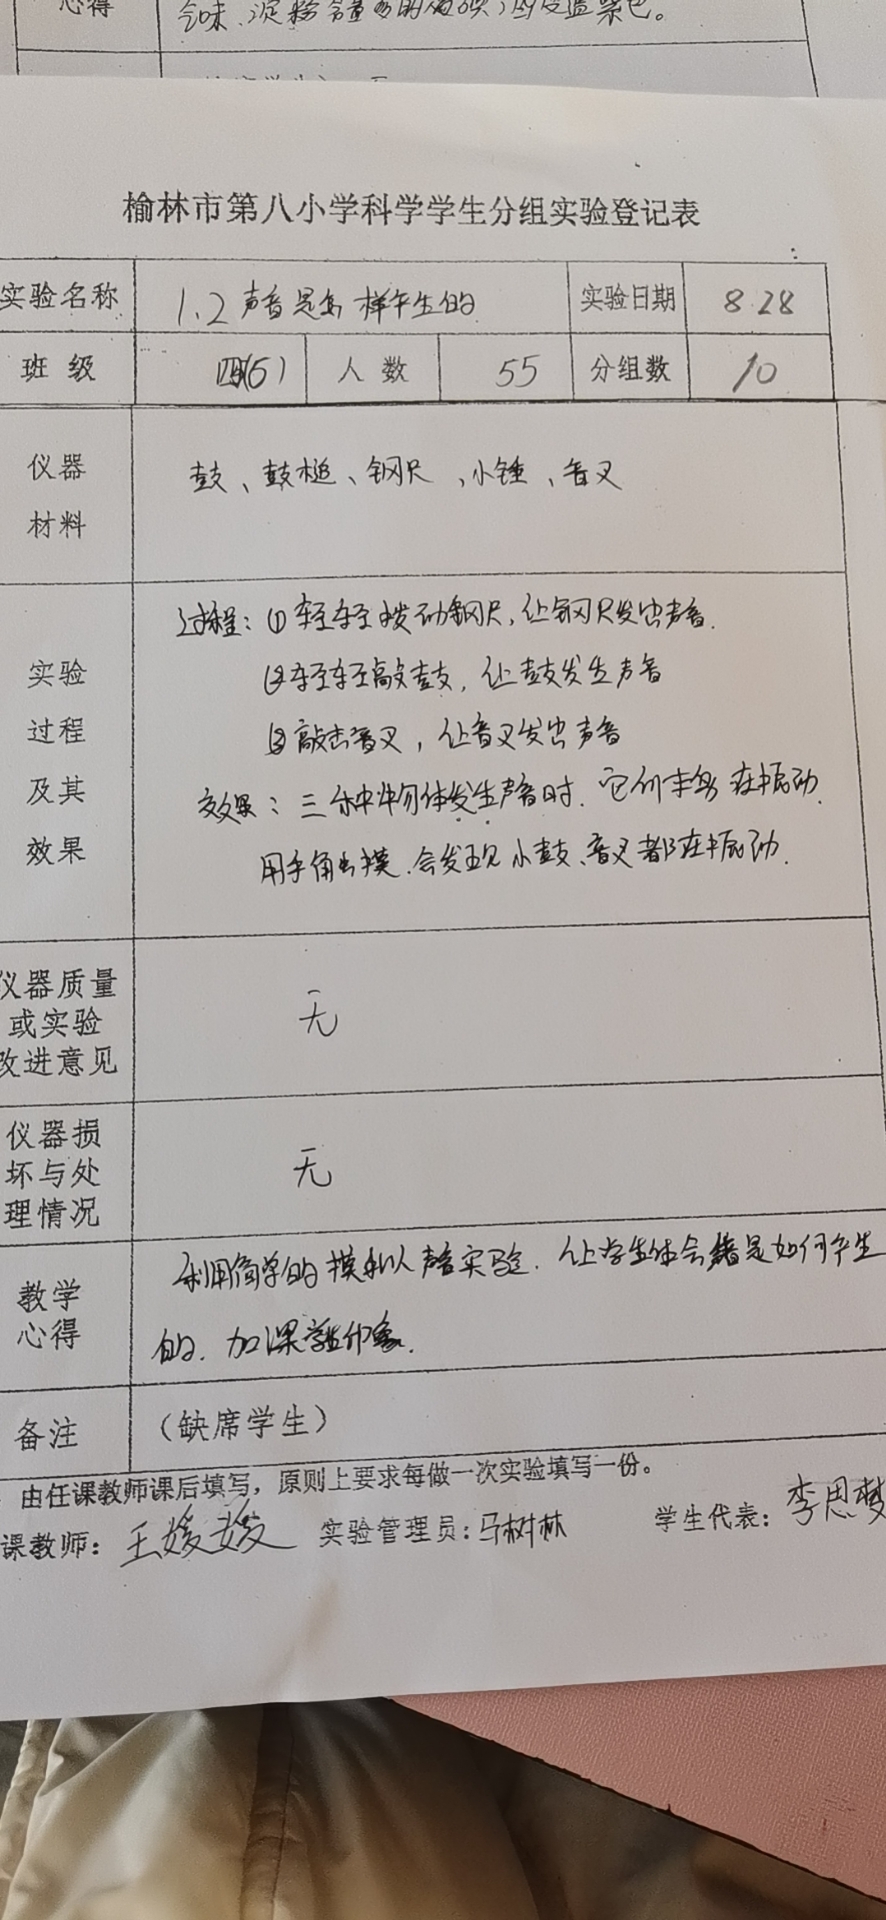 心得
榆林市第八小学科学学生分组实验登记表
实验名称 1.2 声音是怎样产生的 实验日期 8.28
班 级 四(5) 人 数 55 分组数 10
仪器
材料
鼓、鼓槌、钢尺、小锤、音叉
实验
过程
及其
效果
过程: ①轻轻拨动钢尺,让钢尺发出声音.
②轻轻敲鼓,让鼓发生声音
③敲击音叉,让音叉发出声音
效果: 三种物体发生声音时.它们都在振动.
用手触摸.会发现小鼓、音叉都在振动.
仪器质量
或实验
改进意见
无
仪器损
坏与处
理情况
无
教学
心得
利用简单的模拟声音实验.让学生体会 是如何产生
的.加深 印象.
备注 (缺席学生)
由任课教师课后填写,原则上要求每做一次实验填写一份。
课教师: 王媛媛 实验管理员: 马树林 学生代表: 李思梦